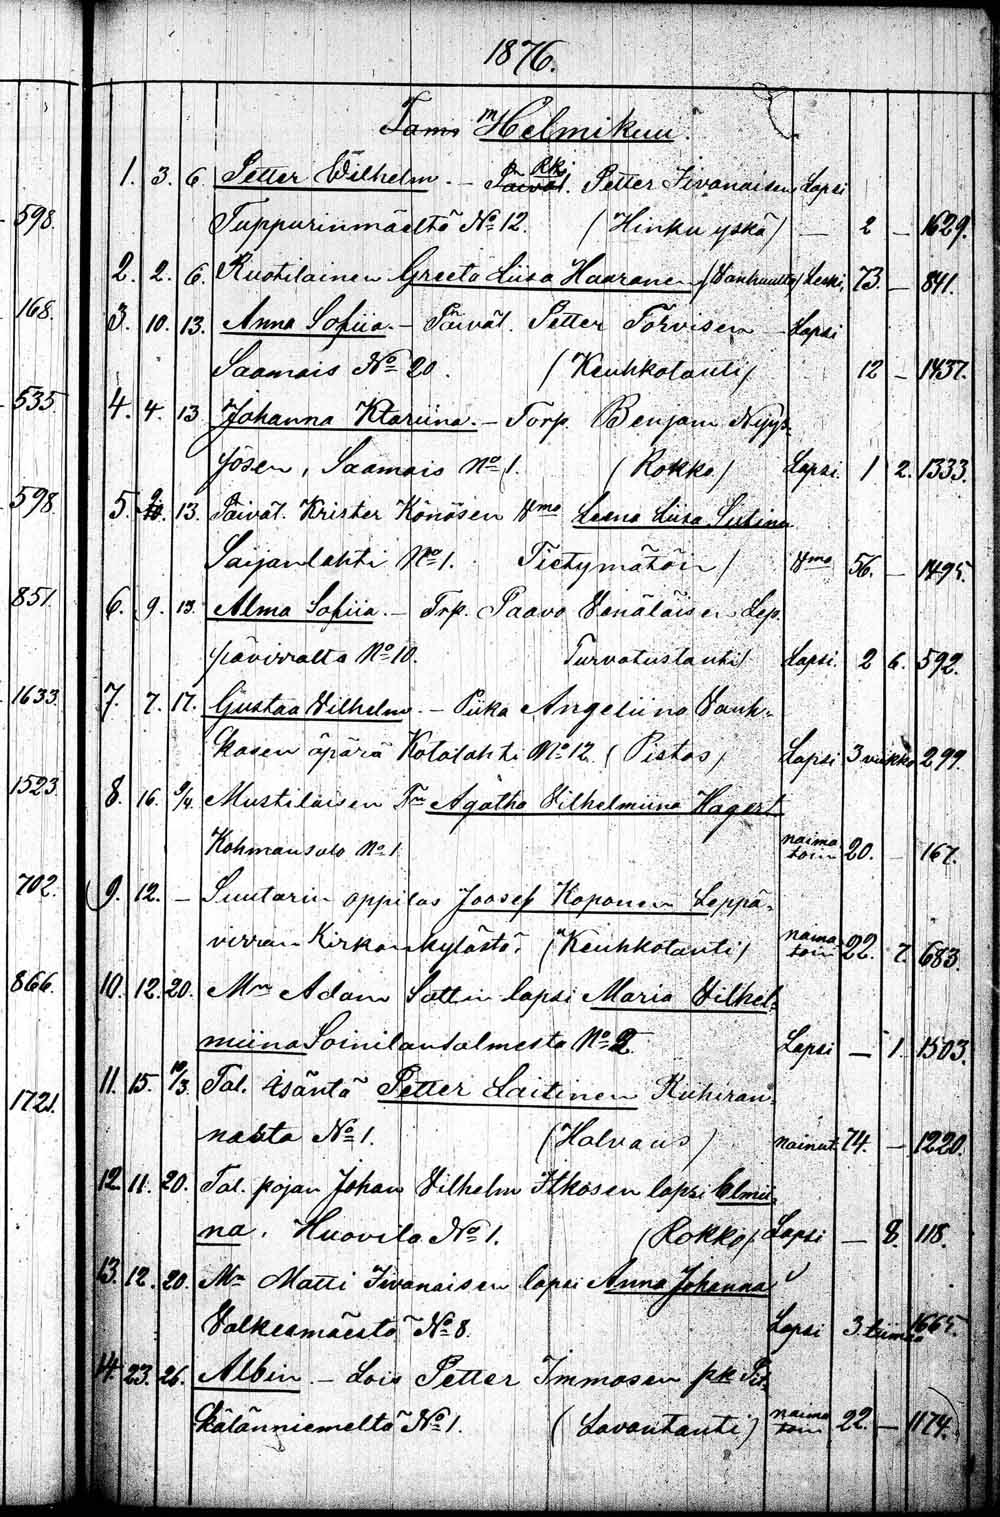 1876.
Helmikuu.
1. 3. 6. Petter Vilhelm. – Petter Iivanaisen Lapsi
598. Tuppurinmäeltä No 12. (Hinku yskä) – 2 – 1629.
2. 2. 6. Ruotilainen Greeta Liisa Haaranen (Vanhuutta) Leski, 73. – 841.
168. 3. 10. 13. Anna Sofiia. – Päivät. Petter Torvisen – Lapsi
Saamais No 20. (Keuhkotauti) 12 – 1437.
535. 4. 4. 13. Johanna Klariina. – Torp. Benjam Nyys-
sösen, Saamais No 1. (Rokko) Lapsi. 1 2. 1333.
598. 5. 13. Päivät. Krister Könösen Vmo Leena Liisa
Saijanlahti No 1. Tietymätön) Vmo 56. – 1495.
851. 6. 9. 13. Alma Sofiia. – Trp. Paavo Venäläisen Lep-
pävirralta No 10. Turvotustauti) Lapsi. 2 6. 592.
1633. 7. 7. 17. Gustaa Vilhelm. – Piika Angeliina Vauh-
kosen äpärä Kotalahti No 12. (Pistos) Lapsi 3 viikko 299.
1523. 8. 16. 9/4. Mustiläisen Agatha Vilhelmiina Hagert
Kohmansalo No 1 naima-
toin 20. – 167.
702. 9. 12. – Suutarin oppilas Joosef Koponen Leppä-
virran Kirkonkylästä. (Keuhkotauti) naima-
toin 22. 7. 683.
866. 10. 12. 20. Mn Adam Sattin lapsi Maria Vilhel-
miina Soinilansalmesta No 2. Lapsi – 1. 1503.
11. 15. 10/3. Tal. isäntä Petter Laitinen Riihiran-
1721. nasta No 1. (Halvaus) nainut 74. – 1220.
12. 11. 20. Tal. pojan Johan Vilhelm Itkosen lapsi Elmii-
na, Huovila No 1. (Rokko) Lapsi – 8. 118.
13. 12. 20. Mn Matti Iivanaisen lapsi Anna Johanna
Valkeamäestä No 8. Lapsi 3 tiimaa 1665.
14. 23. 26. Albin – Lois Petter Immosen
kälänniemeltä No 1. (Lavantauti) naima-
toin 22. – 1174.